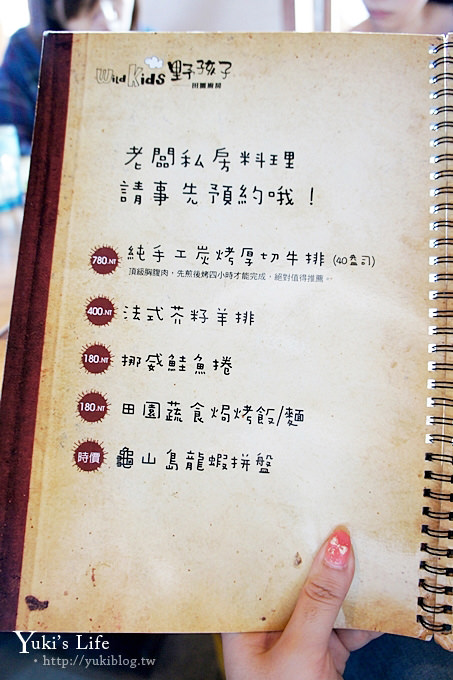 Wild Kids 野孩子
田園廚房
老闆私房料理
請事先預約哦！
780.NT 純手工炭烤厚切牛排 (40盎司)
頂級胸腹肉，先煎後烤四小時才能完成，絕對值得推薦。
400.NT 法式芥籽羊排
180.NT 挪威鮭魚捲
180.NT 田園蔬食焗烤飯/麵
時價 龜山島龍蝦拼盤
Yuki's Life
http://yukiblog.tw